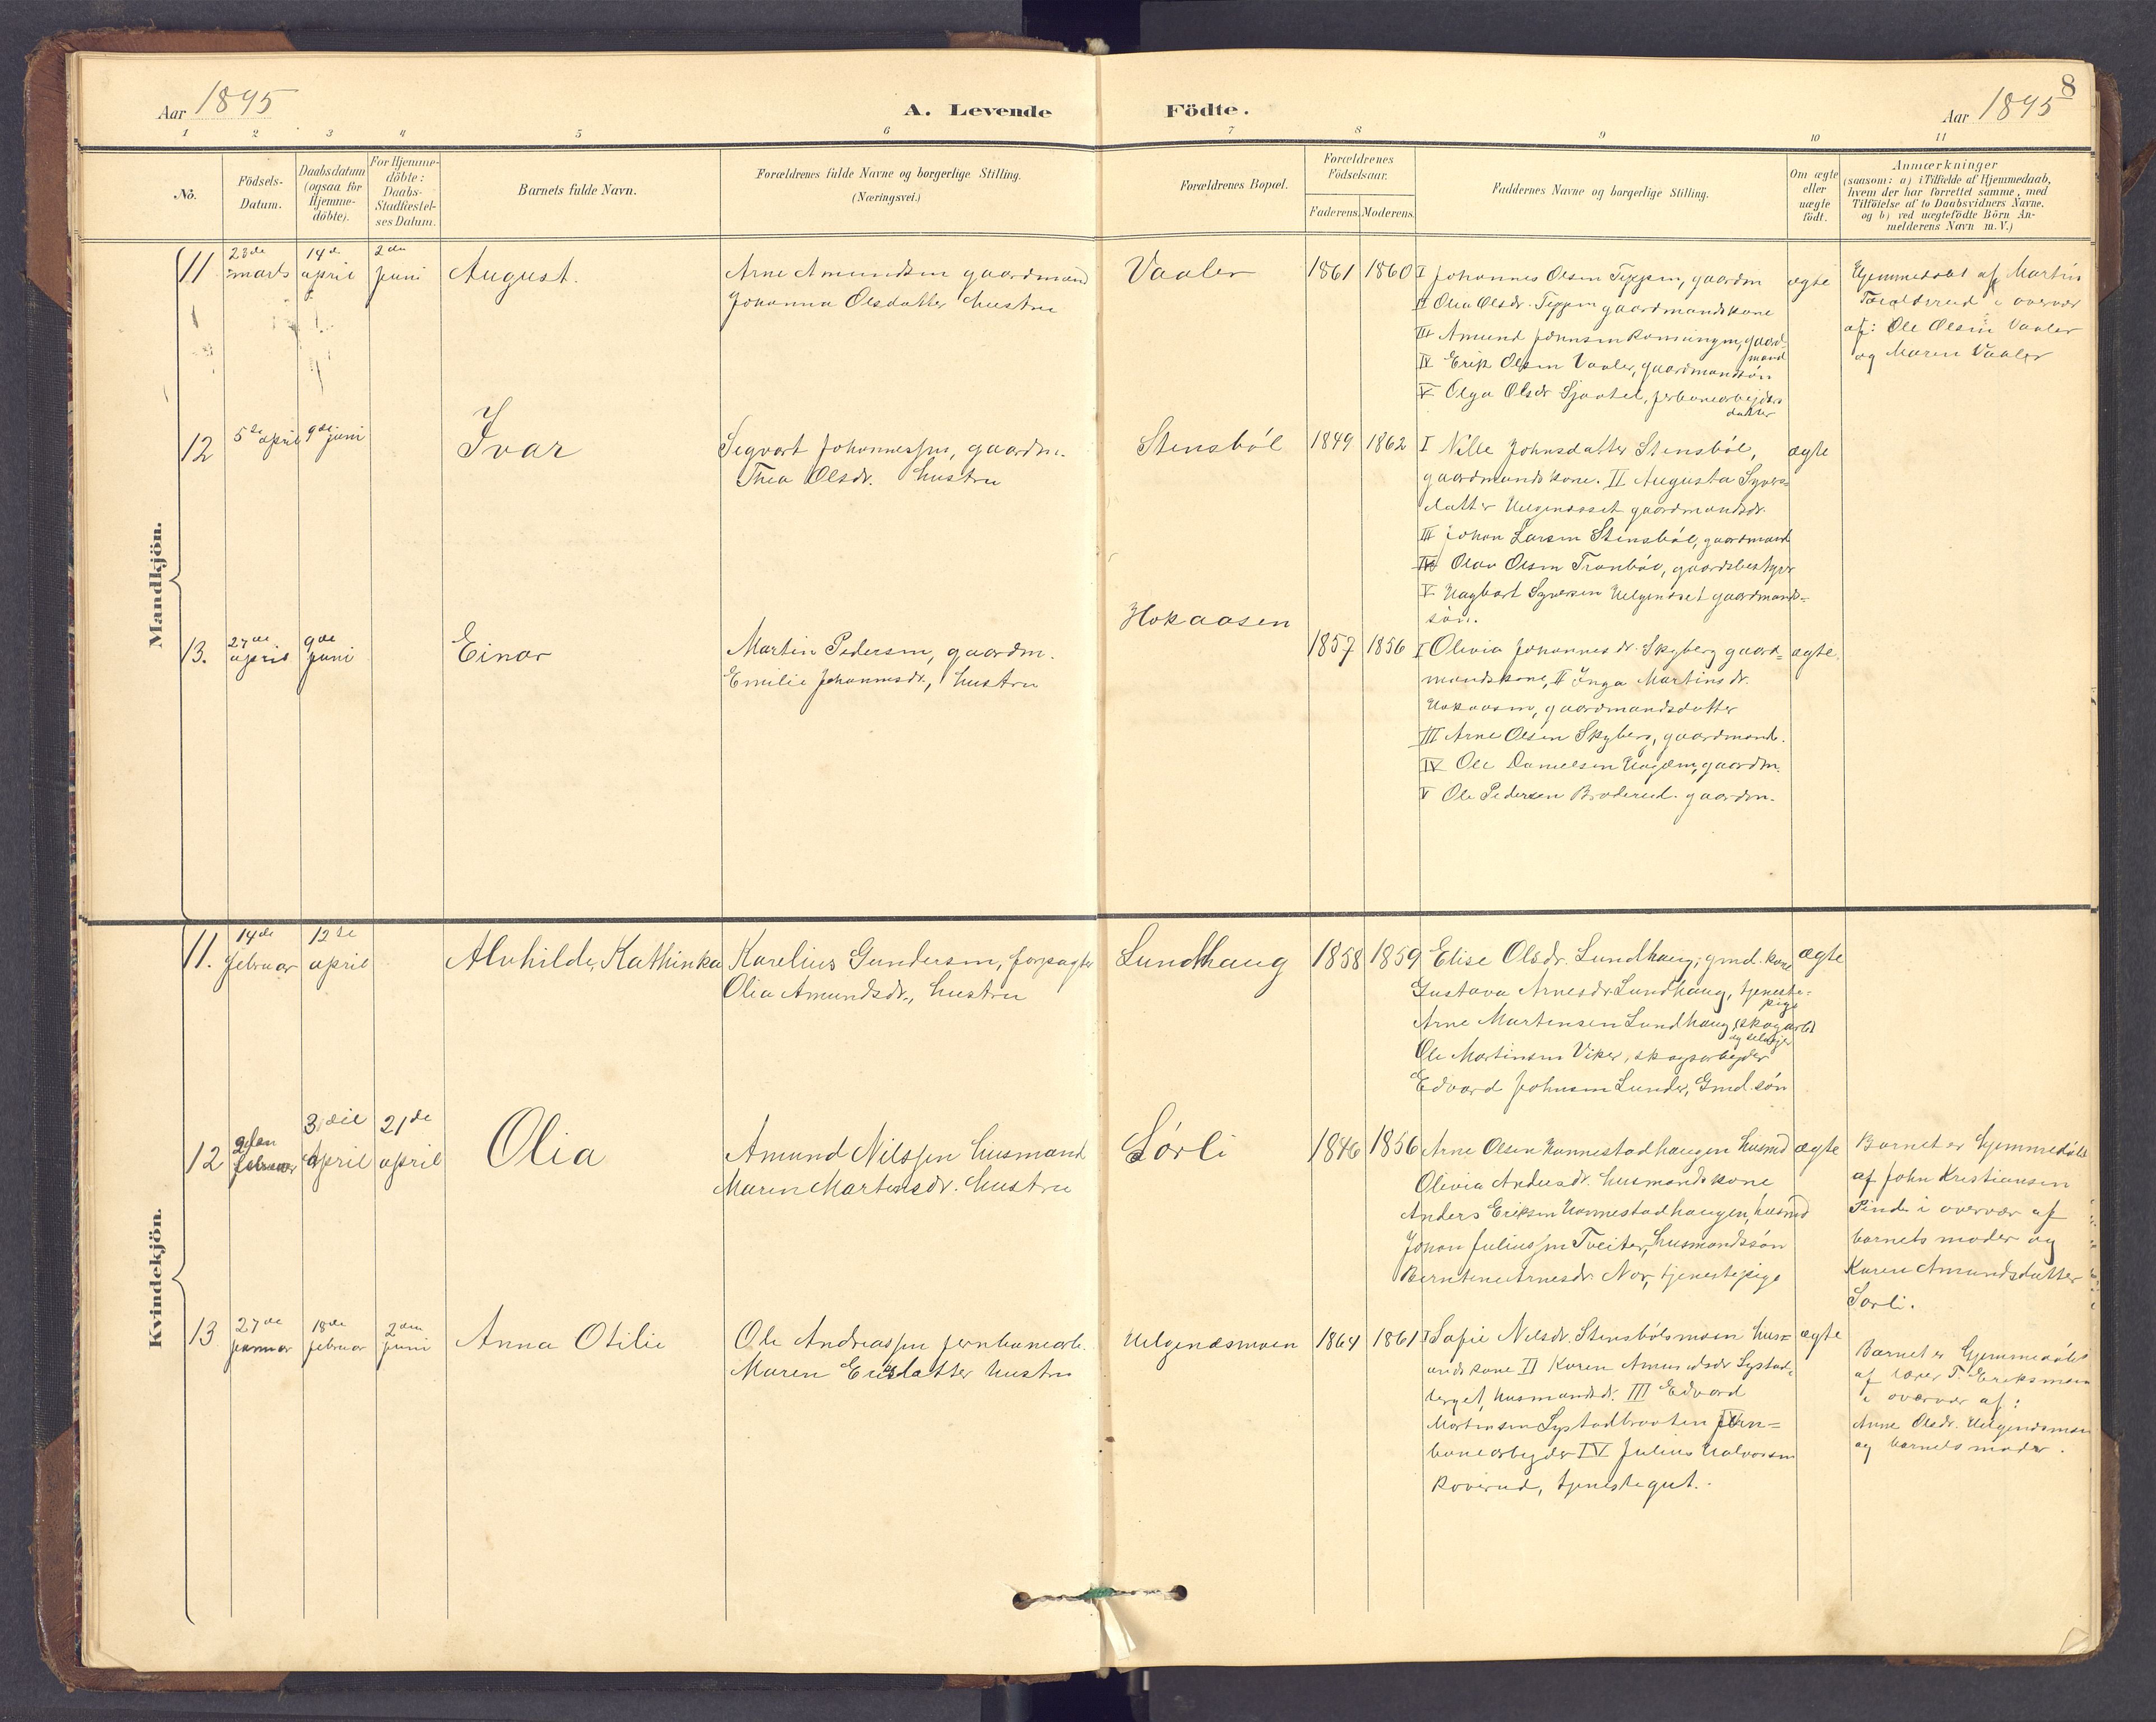 8
Aar 1895
A. Levende Födte.
Aar 1895
1 2 3 4 5 6 7 8 9 10 11
No.
Födsels-
Datum.
Daabsdatum
(ogsaa for
Hjemme-
döbte).
For Hjemme-
döbte:
Daabs-
Stadfæstel-
ses Datum.
Barnets fulde Navn.
Forældrenes fulde Navne og borgerlige Stilling.
(Næringsvei.)
Forældrenes Bopæl.
Forældrenes
Födselsaar.
Faderens. Moderens.
Faddernes Navne og borgerlige Stilling.
Om ægte
eller
uægte
födt.
Anmærkninger
(saasom: a) i Tilfælde af Hjemmedaab,
hvem der har forrettet samme, med
Tilföielse af to Daabsvidners Navne.
og b) ved uægtefödte Börn An-
melderens Navn m. V.)
Mandkjön.
11
23de
marts
14de
april
2den
juni
August.
Arne Amundsen gaardmand
Johanna Olsdatter hustru
Vaaler
1861 1860
I Johannes Olsen Teppen, gaardm
II Olia Olsdr. Teppen gaardmandskone
III Amund Johnsen, gaard-
mand
IV Erik Olsen Vaaler, gaardmandsøn
V Olga Olsdr jernbanearbejders
datter
ægte
Hjemmedøbt af Martin
i overvær
af: Ole Olsen Vaaler
og Maren Vaaler
12
5te april
9de juni
Ivar
Segvart Johannessen, gaardm.
Thea Olsdr. hustru
Stensbøl
1849 1862
I Nille Johnsdatter Stensbøl,
gaardmandskone. II Augusta Syvers=
datter Helgenæset gaardmandsdr.
III Johan Larsen Stensbøl, gaardmand
IV Olav Olsen Tranbøl, gaardsbestyrer
V Hagbart Syversen Helgenæset gaardmands=
søn.
ægte
13.
27de
april
9de
juni
Einar
Martin Pedersen, gaardm.
Emilie Johannesdr., hustru
Hokaasen
1857 1856
I Olivia Johannesdr. Skyberg gaard=
mandskone, II Inga Martinsdr.
Hokaasen, gaardmandsdatter
III Arne Olsen Skyberg, gaardmand.
IV Ole Danielsen, gaardm.
V Ole Pedersen Broderud. gaardm.
ægte.
Kvindekjön.
11.
14de
februar
12te
april
Alvhilde Kathinka
Karelius Gundersen, forpagter
Olia Amundsdr., hustru
Lundhaug
1858 1859
Elise Olsdr. Lundhaug, gmd. kone
Gustava Arnesdr Lundhaug, tjeneste-
pige
Arne Martinsen Lundhaug, skogarb.
og selvejer
Ole Martinsen Viker, skogsarbejder
Edvard Johnsen Lunder, Gmd. søn
ægte
12
9den
februar
3die
april
21de
april
Olia
Amund Nilssen husmand
Maren Martinsdr. hustru
Sørli
1846 1856
Arne Olsen Honnestadhaugen husmd
Olivia Andersdr. husmandskone
Anders Eriksen Honnestadhaugen, husmd
Johan Juliussen Tveiter, husmandssøn
Berntine Arnesdr. Nor, tjenestepige
ægte
Barnet er hjemmedøbt
af John Kristiansen
Pinde i overvær af
barnets moder og
Karen Amundsdatter
Sørli.
13
27de
januar
18de
februar
2den
juni
Anna Otilie
Ole Andreassen jernbanearb.
Maren Ersdatter hustru
Helgenæsmoen
1864 1861
I Sofie Nilsdr. Stensbølsmoen hus=
andskone II Karen Amundsdr Systad-
berget, husmandsdr. III Edvard
Martinsen Systadbraaten jern=
banearbejder IV Julius Halvorsen
Roverud, tjenestegut.
ægte
Barnet er hjemmedøbt
af lærer T. Eriksmoen
i overvær af:
Anne Olsdr. Helgenæsmoen
og barnets moder.